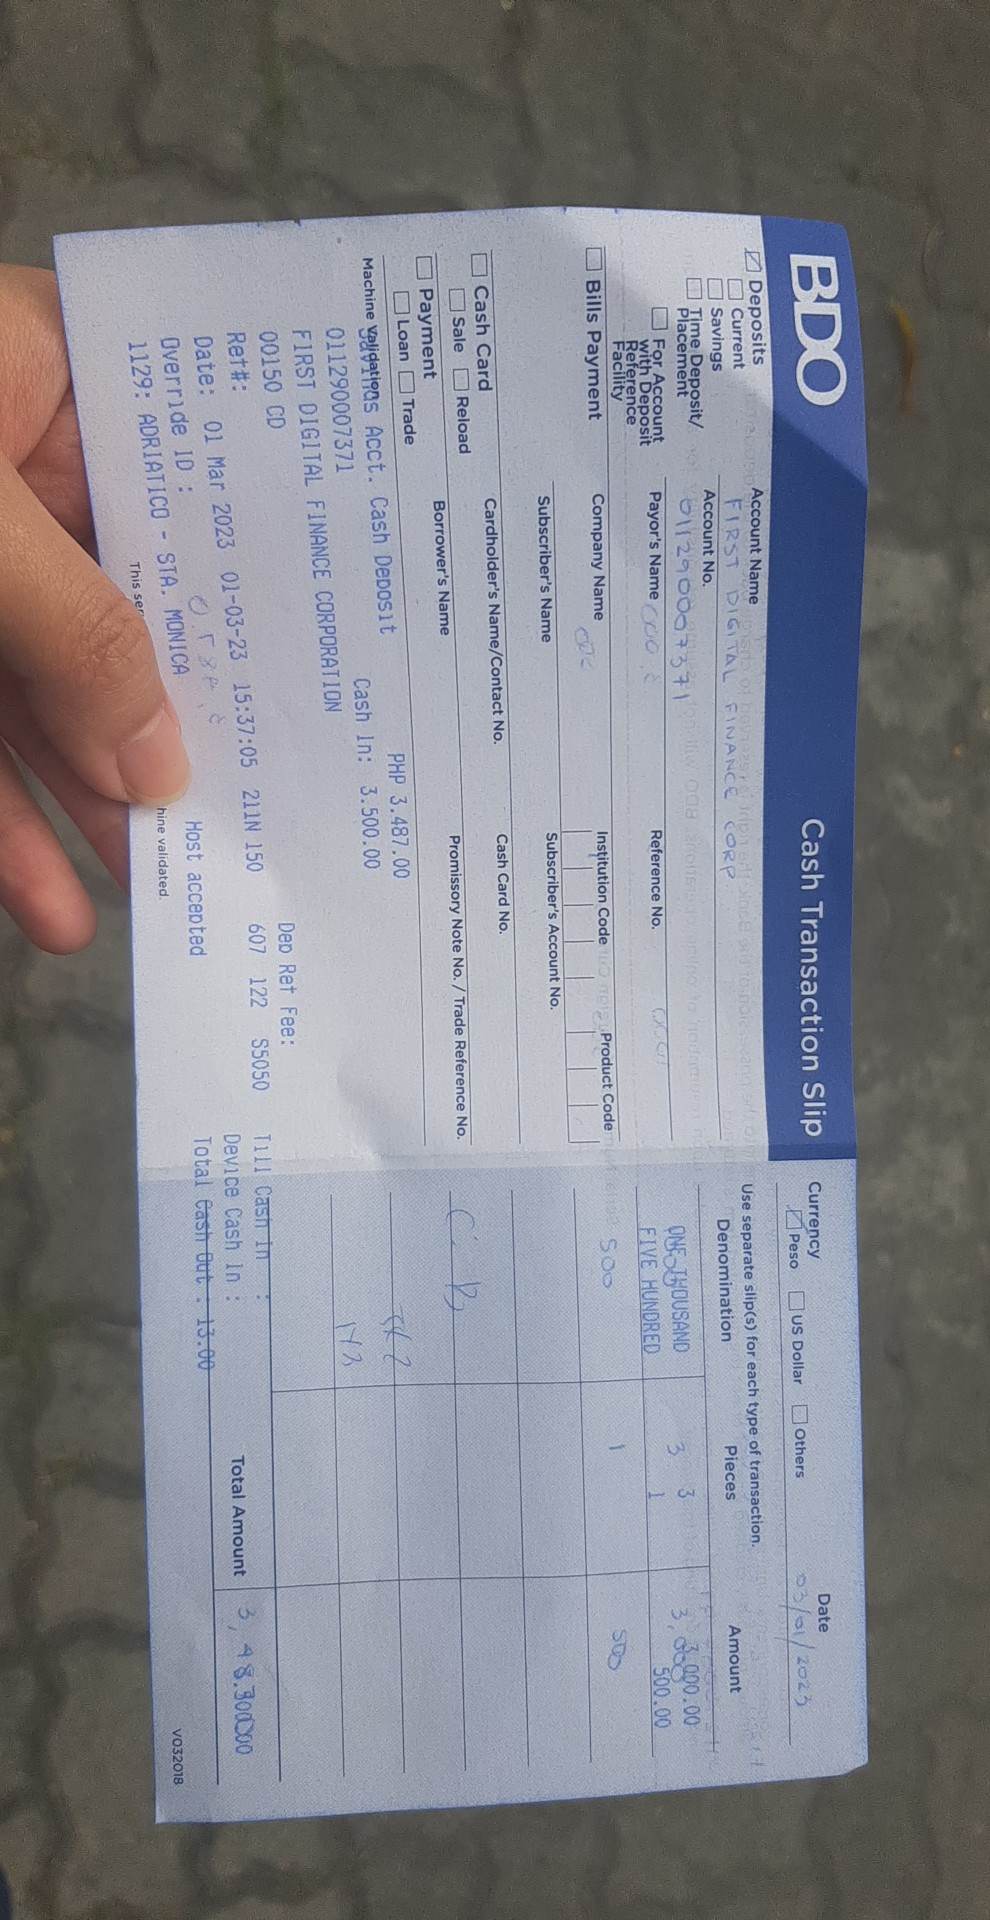 BDO
Cash Transaction Slip
Deposits
Current
Savings
Time Deposit/
Placement
For Account
with Deposit
Reference
Facility
Account Name
FIRST DIGITAL FINANCE CORP
Account No.
011290007371
Payor's Name
Reference No.
Bills Payment
Company Name
Institution Code Product Code
Subscriber's Name
Subscriber's Account No.
Cash Card
Sale Reload
Cardholder's Name/Contact No.
Cash Card No.
Payment
Loan Trade
Borrower's Name
Promissory Note No. / Trade Reference No.
Machine Validation
Savings Acct. Cash Deposit PHP 3.487.00
011290007371 Cash In: 3.500.00
FIRST DIGITAL FINANCE CORPORATION
00150 CD
Ref#: Dep Ref Fee:
Date: 01 Mar 2023 01-03-23 15:37:05 211N 150 607 122 S5050
Override ID :
1129: ADRIATICO - STA. MONICA Host accepted
This ser hine validated.
Currency
Peso US Dollar Others
Date
03/01/2023
Use separate slip(s) for each type of transaction.
Denomination Pieces Amount
ONE THOUSAND 3 3,000.00
3
FIVE HUNDRED 1 500.00
500 1 500
Till Cash In :
Device Cash In :
Total Cash Out : 13.00
Total Amount
V032018